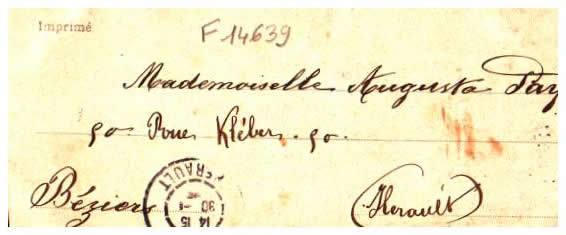 Imprimé
F 14639
Mademoiselle Augusta
90 Rue Kléber. 90.
Béziers (Hérault)
HERAULT
14 15
30